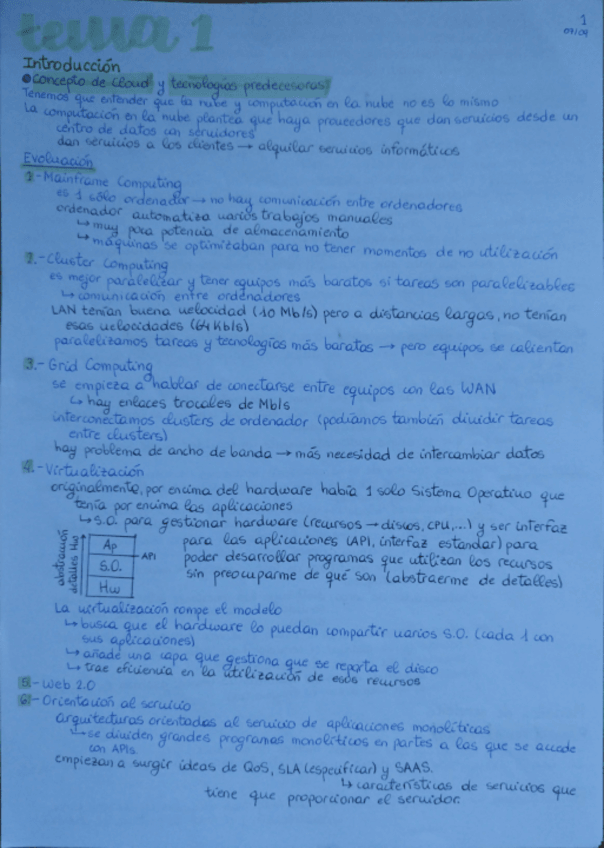 tema 1
1
07/09
Introducción
Concepto de Cloud y tecnologías predecesoras
Tenemos que entender que la nube y computación en la nube no es lo mismo
La computación en la nube plantea que haya proveedores que dan servicios desde un
centro de datos con servidores
dan servicios a los clientes → alquilar servicios informáticos
Evaluación
1.- Mainframe Computing
es 1 sólo ordenador → no hay comunicación entre ordenadores
ordenador automatiza varios trabajos manuales
↳ muy poca potencia de almacenamiento
↳ máquinas se optimizaban para no tener momentos de no utilización
2.- Cluster Computing
es mejor paralelizar y tener equipos más baratos si tareas son paralelizables
↳ comunicación entre ordenadores
LAN tenían buena velocidad (10 Mb/s) pero a distancias largas, no tenían
esas velocidades (64 Kb/s)
paralelizamos tareas y tecnologías más baratas → pero equipos se calientan
3.- Grid Computing
se empieza a hablar de conectarse entre equipos con las WAN
↳ hay enlaces trocales de Mb/s
interconectamos clusters de ordenador (podíamos también dividir tareas
entre clusters)
hay problema de ancho de banda → más necesidad de intercambiar datos
4.- Virtualización
originalmente, por encima del hardware había 1 solo Sistema Operativo que
tenía por encima las aplicaciones
↳ S.O. para gestionar hardware (recursos → discos, CPU,...) y ser interfaz
para las aplicaciones (API, interfaz estandar) para
poder desarrollar programas que utilizan los recursos
sin preocuparme de qué son (abstraerme de detalles)
abstracción
detalles Hw
Ap
API
S.O.
Hw
La virtualización rompe el modelo
↳ busca que el hardware lo puedan compartir varios S.O. (cada 1 con
sus aplicaciones)
↳ añade una capa que gestiona que se reparta el disco
↳ trae eficiencia en la utilización de esos recursos
5.- Web 2.0
6.- Orientación al servicio
arquitecturas orientadas al servicio de aplicaciones monolíticas
↳ se dividen grandes programas monolíticos en partes a las que se accede
con APIs.
empiezan a surgir ideas de QoS, SLA (especificar) y SAAS.
↳ características de servicios que
tiene que proporcionar el servidor.